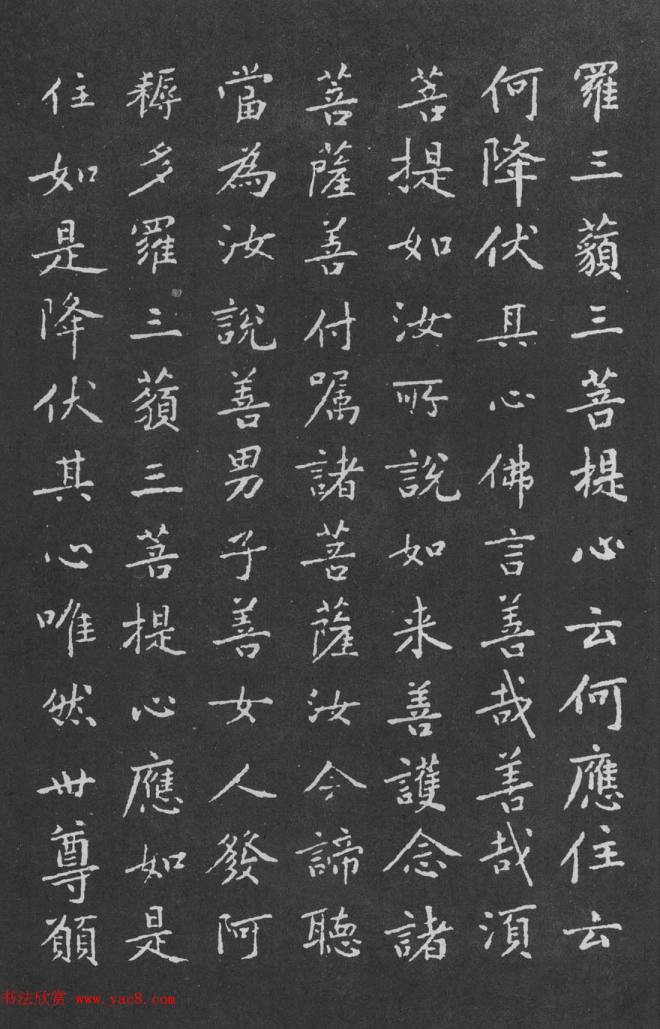 羅三藐三菩提心云何應住云
何降伏其心佛言善哉善哉湏
菩提如汝所說如来善護念諸
菩薩善付嘱諸菩薩汝今諦聽
當為汝說善男子善女人發阿
耨多羅三藐三菩提心應如是
住如是降伏其心唯然世尊願
书法欣赏 www.yac8.com